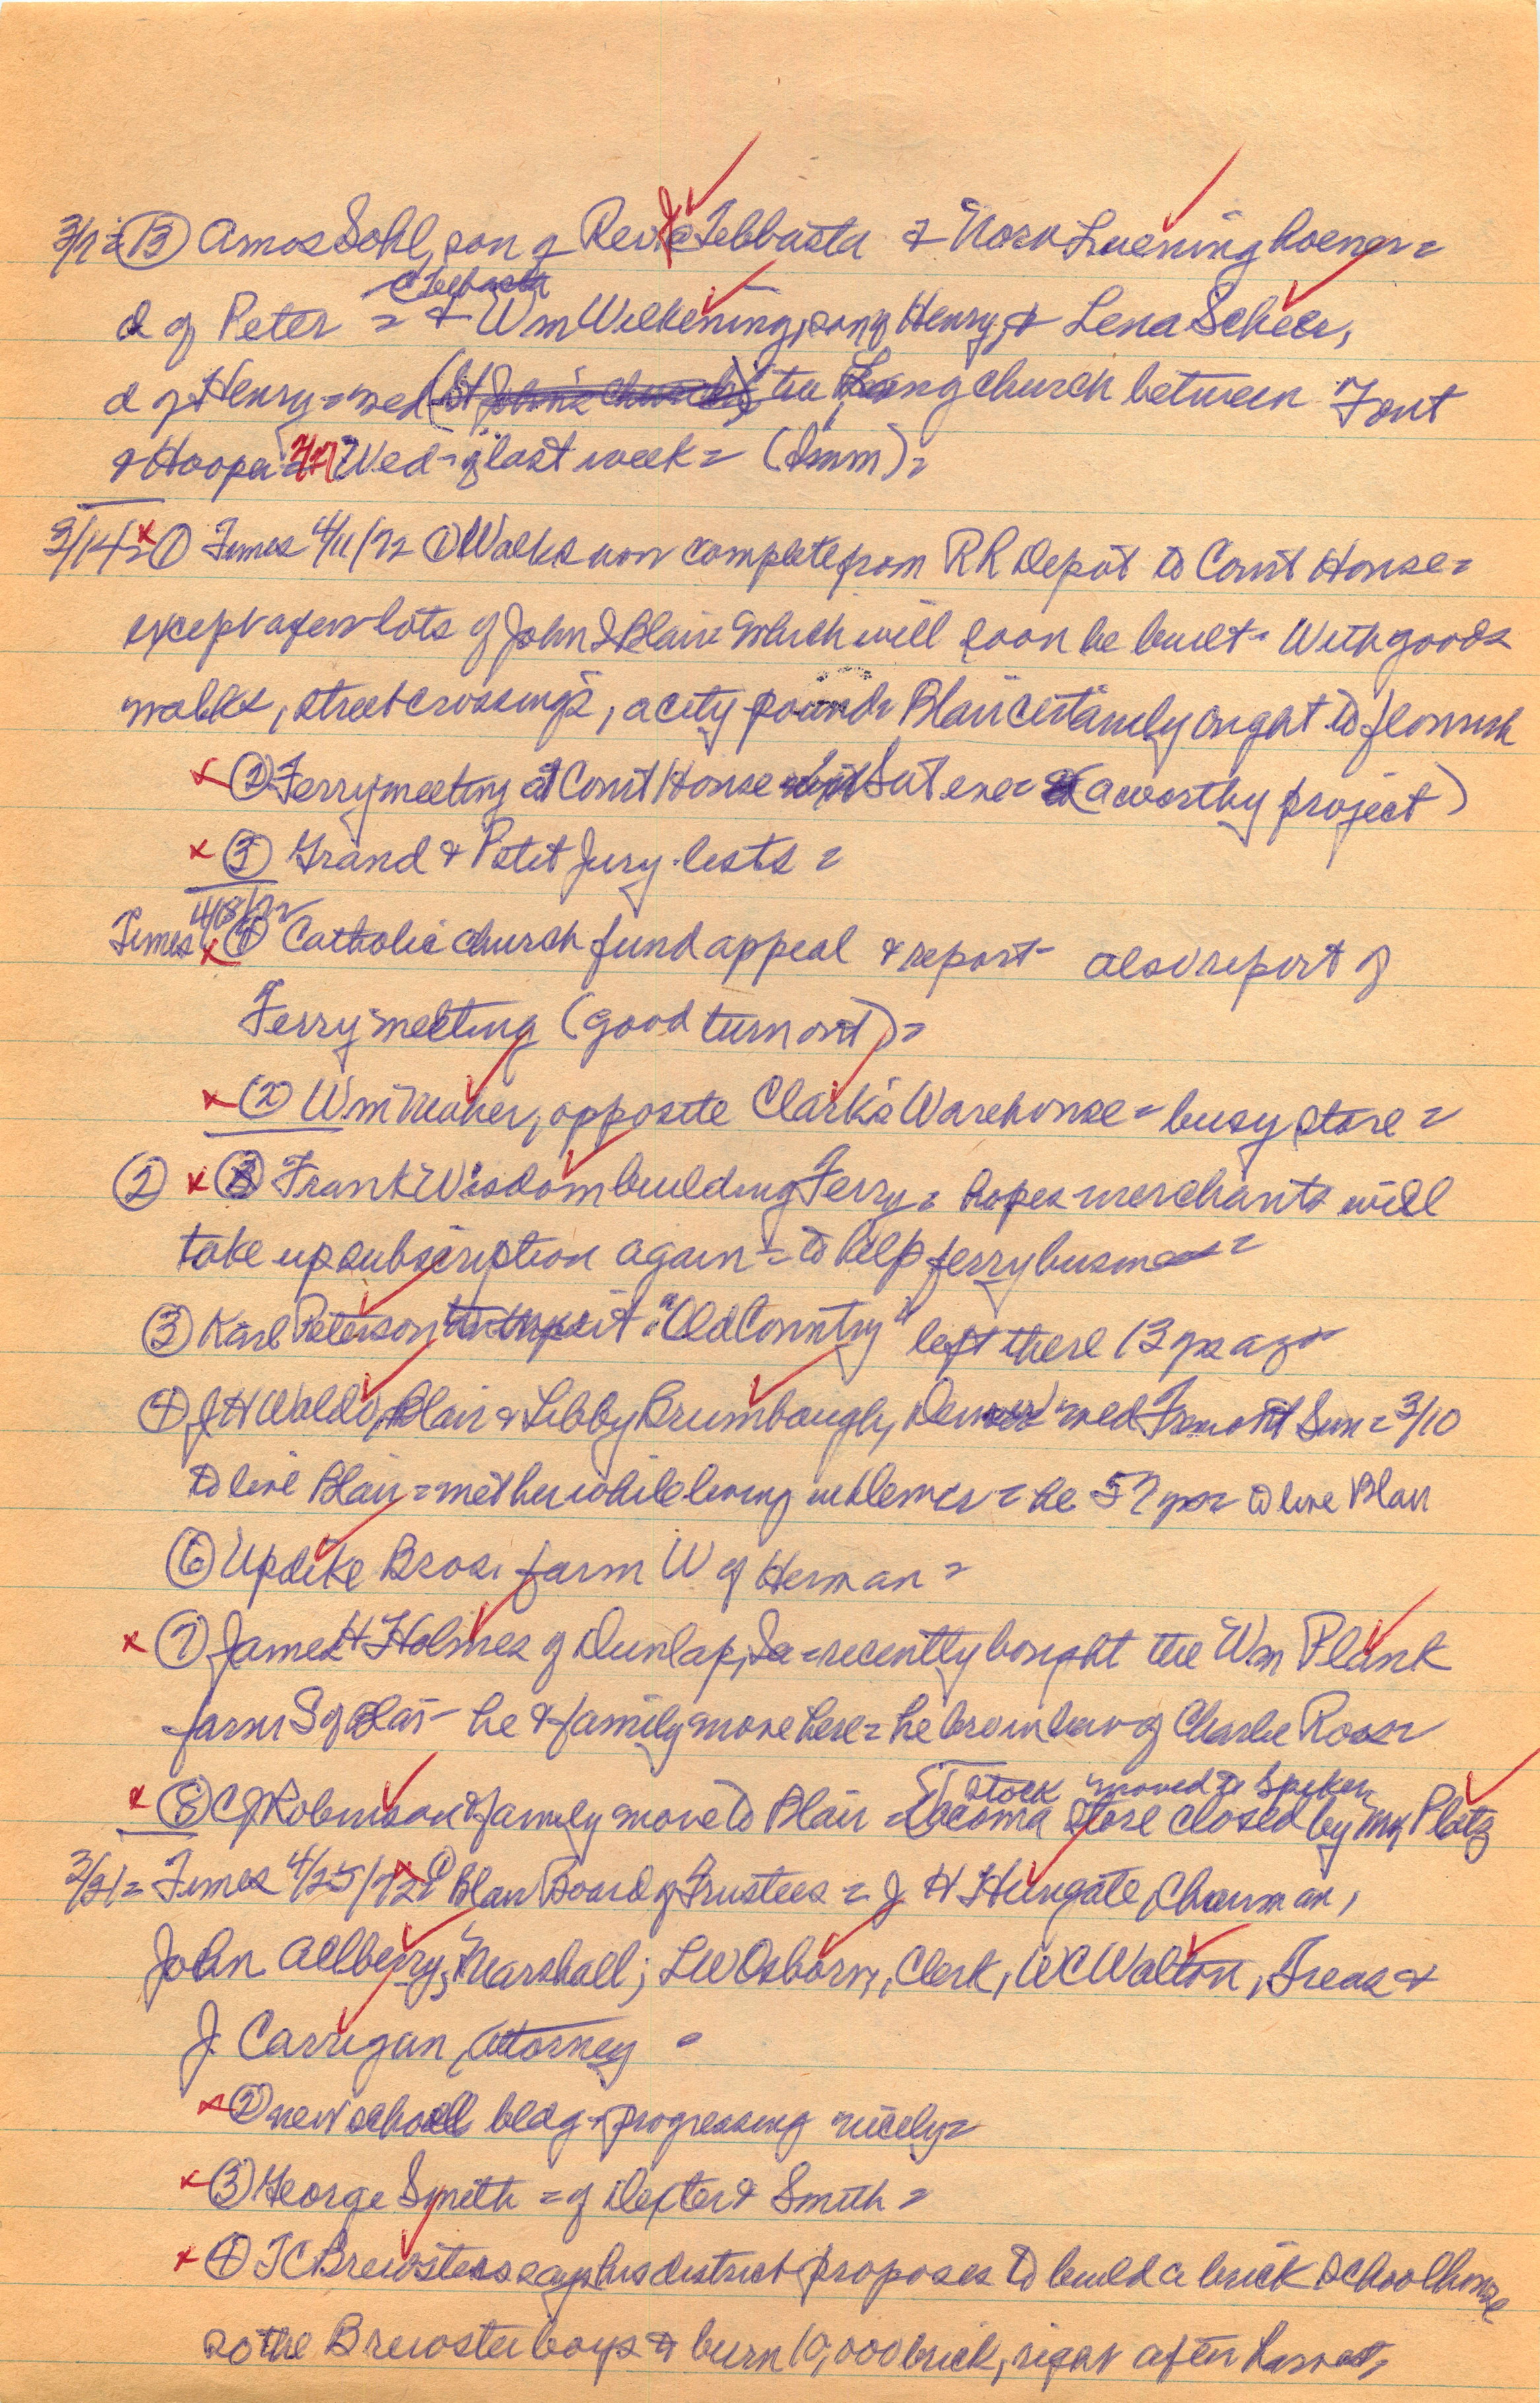 3/7 = (13) Amos Sohl, son of Rev & Tebbasta & Nora Lueninghoener =
C Teebasta
d of Peter = & Wm Wilkening, son of Henry, & Lena Scheer,
d of Henry = wed (St John's Church) the Lang church between Font
& Hooper = Wed - of last week = (Imm) =
3/14 = x (1) Times 4/11/72 (1) Walks now complete from RR Depot to Court House =
except a few lots of John I Blair which will soon be built - With goods
walks, street crossings, a city pound = Blair certainly ought to flourish
x (2) Ferry meeting at Court House Sat eve = (a worthy project)
x (3) Grand & Petit Jury lists =
4/18/72
Times x (1) Catholic church fund appeal & report - also report of
Ferry meeting (good turn out) =
x (2) Wm Maher, opposite Clark's Warehouse = busy store =
(2) x (3) Frank Wisdom building Ferry = hopes merchants will
take up subscription again = to help ferry business =
(3) Karl Peterson "Old Country" left there 13 yrs ago =
(4) J H Waldo, Blair & Libby Brumbaugh, Denver wed Fremont Sun = 3/10
to live Blair = met her while living in Denver = he 57 yrs = to live Blair
(6) Updike Bros. farm W of Herman =
x (7) James H Holmes of Dunlap, Ia = recently bought the Wm Plank
farm S of Blair - he & family move here = he bro in law of Charlie Ross =
Stock moved to Spiker
x (8) C J Robinson & family move to Blair = (Tacoma store closed by Platz
3/21 = Times 4/25/72 x (1) Blair Board of Trustees = J H Hungate, Chairman,
John Allberry, Marshall; L W Osborn, Clerk, W C Walton, Treas &
J. Carrigan, Attorney =
x (2) new school bldg - progressing nicely =
x (3) George Smith = of Dexter & Smith =
x (4) T C Brewster says his district proposes to build a brick schoolhouse
so the Brewster boys to burn 10,000 brick, right after harvest,